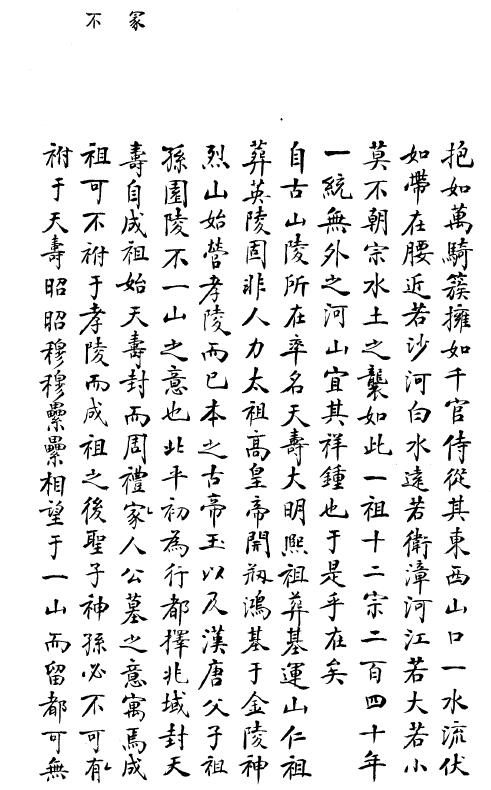 冢
不
抱如萬騎簇擁如千官侍從其東西山口一水流伏
如帶在腰近若沙河白水遠若衛漳河江若大若小
莫不朝宗水土之襲如此一祖十二宗二百四十年
一統無外之河山宜其祥鍾也于是乎在矣
自古山陵所在率名天壽大明熙祖葬基運山仁祖
葬英陵固非人力太祖高皇帝開剏鴻基于金陵神
烈山始營孝陵而已本之古帝王以及漢唐父子祖
孫園陵不一山之意也北平初為行都擇兆域封天
壽自成祖始天壽封而周禮家人公墓之意寓焉成
祖可不祔于孝陵而成祖之後聖子神孫必不可有
祔于天壽昭昭穆穆纍纍相望于一山而留都可無